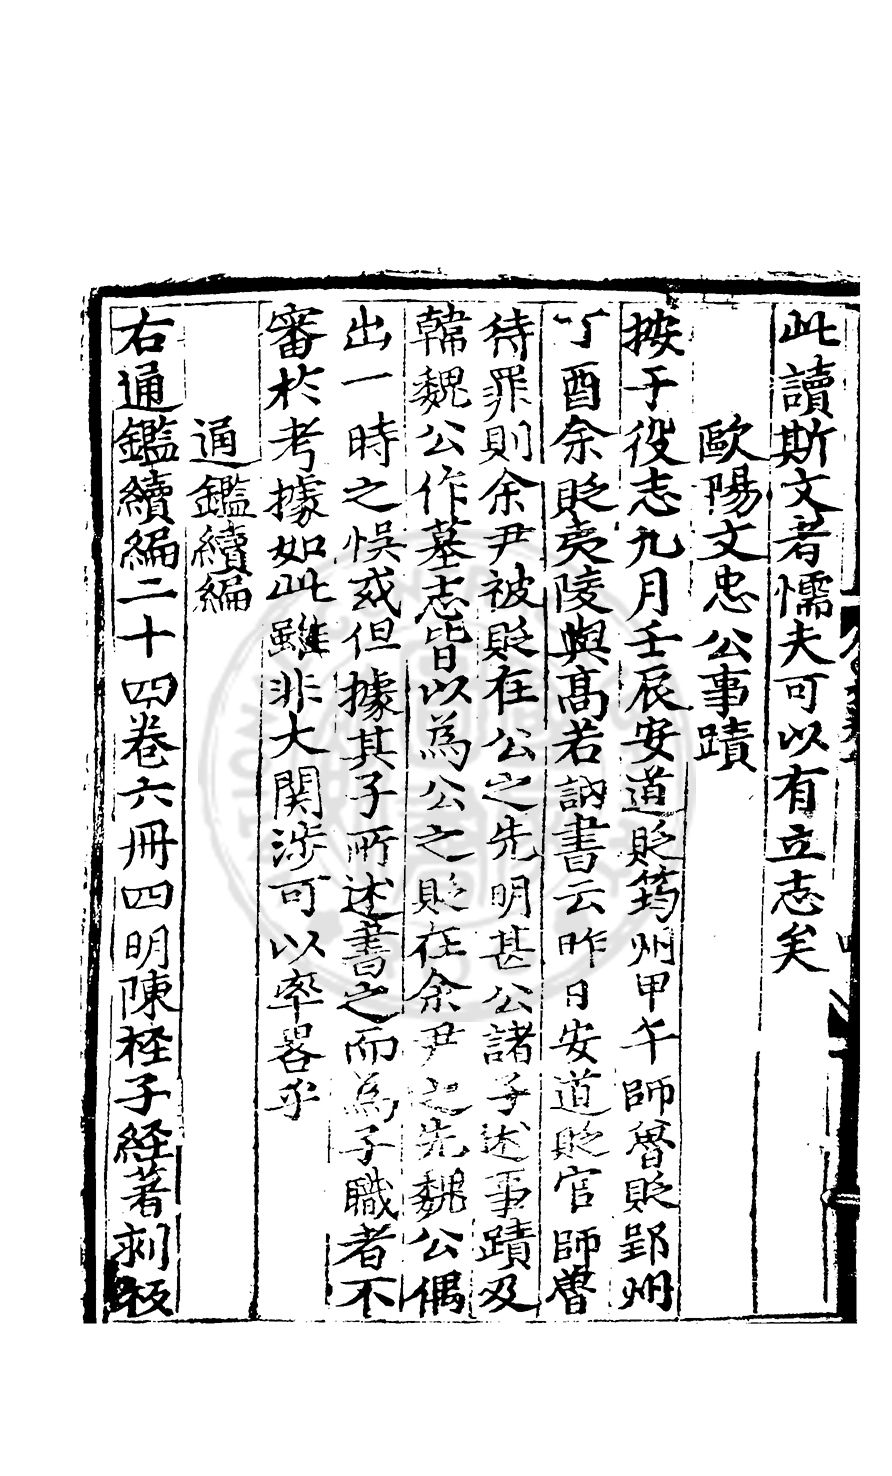 此讀斯文者懦夫可以有立志矣
歐陽文忠公事蹟
按于役志九月壬辰安道貶筠州甲午師魯貶郢州
丁酉余貶夷陵與髙若訥書云昨日安道貶官師魯
待罪則余尹被貶在公之先明甚公諸子述事蹟及
韓魏公作墓志皆以為公之貶在余尹之先魏公偶
出一時之悞或但據其子所述書之而為子職者不
審於考據如此雖非大関涉可以率畧乎
通鑑續編
右通鑑續編二十四卷六冊四明陳桱子経著刻板